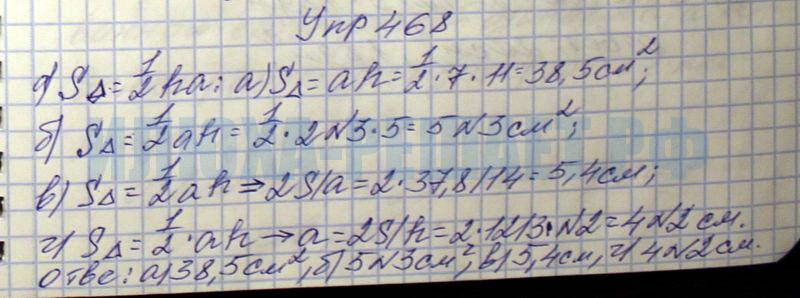 Упр 468
а) S△ = 1/2 ha; а) S△ = ah = 1/2 · 7 · 11 = 38,5 см²;
б) S△ = 1/2 ah = 1/2 · 2√3 · 5 = 5√3 см²;
в) S△ = 1/2 ah ⇒ 2S/a = 2 · 37,8/14 = 5,4 см;
г) S△ = 1/2 · ah → a = 2S/h = 2 · 12/3 · √2 = 4√2 см.
ответ: а) 38,5 см², б) 5√3 см², в) 5,4 см, г) 4√2 см.